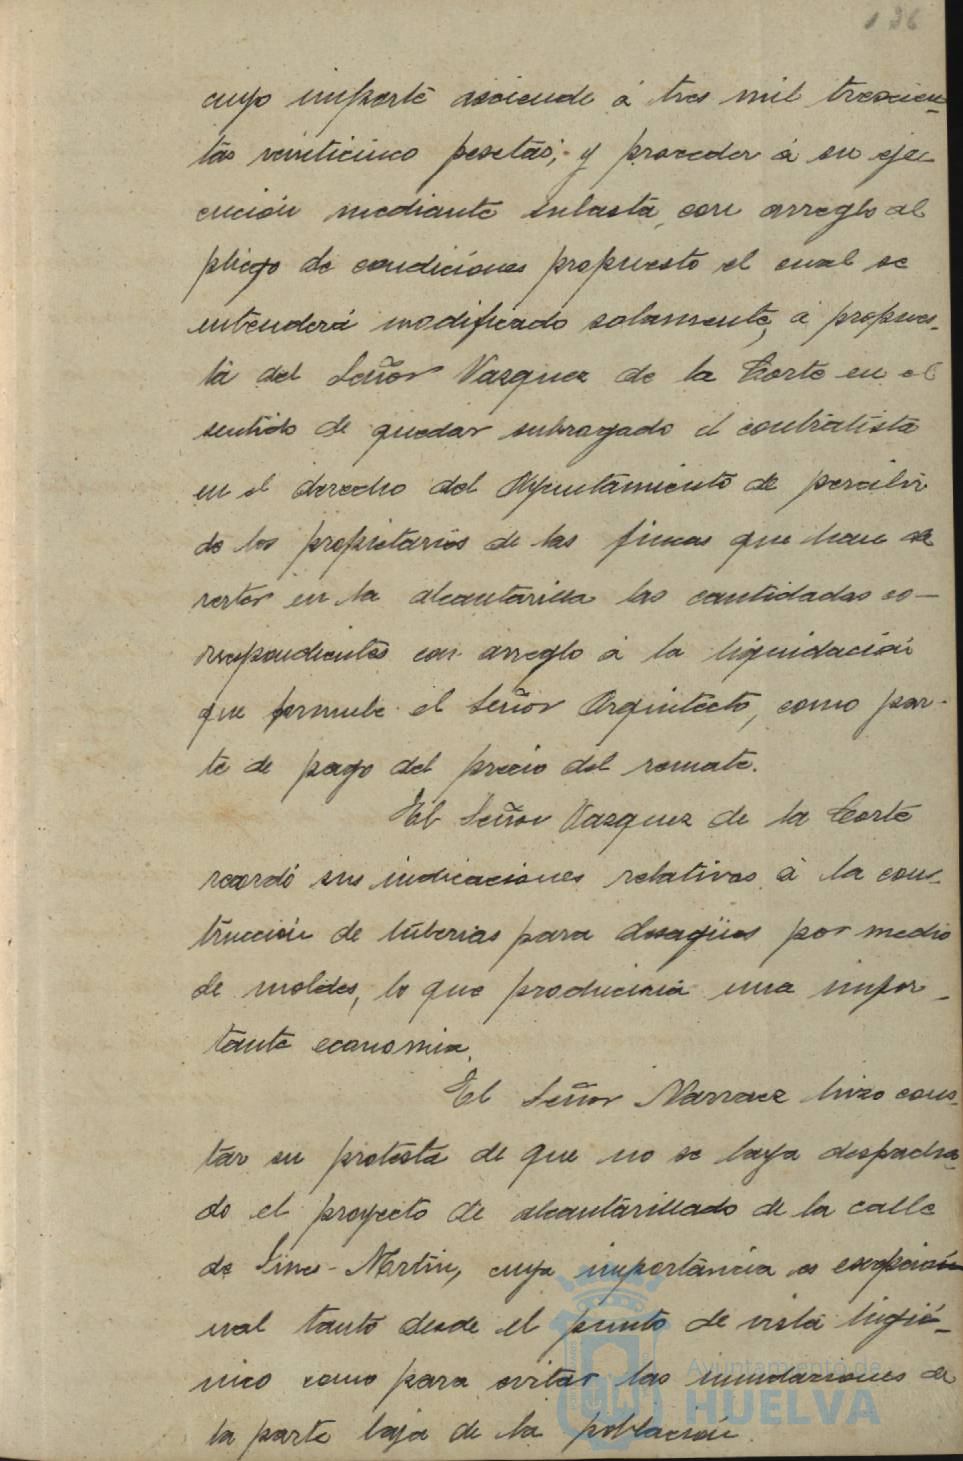 136
cuyo importe asciende á tres mil trescien-
tas veinticinco pesetas; y proceder á su eje-
cución mediante subasta, con arreglo al
pliego de condiciones propuesto el cual se
entenderá modificado solamente, á propues-
ta del Señor Vazquez de la Corte en el
sentido de quedar subrogado el contratista
en el derecho del Ayuntamiento de percibir
de los propietarios de las fincas que han de
verter en la alcantarilla las cantidades co-
rrespondientes con arreglo á la liquidación
que formule el Señor Arquitecto, como par-
te de pago del precio del remate.
El Señor Vazquez de la Corte
recordó sus indicaciones relativas á la cons-
trucción de tuberias para desagües por medio
de moldes, lo que produciria una impor-
tante economia.
El Señor Narvaez hizo cons-
tar su protesta de que no se haya despacha-
do el proyecto de alcantarillado de la calle
de Gines-Martin, cuya importancia es excepcio-
nal tanto desde el punto de vista higié-
nico como para evitar las inundaciones de
la parte baja de la población.
Ayuntamiento de
HUELVA